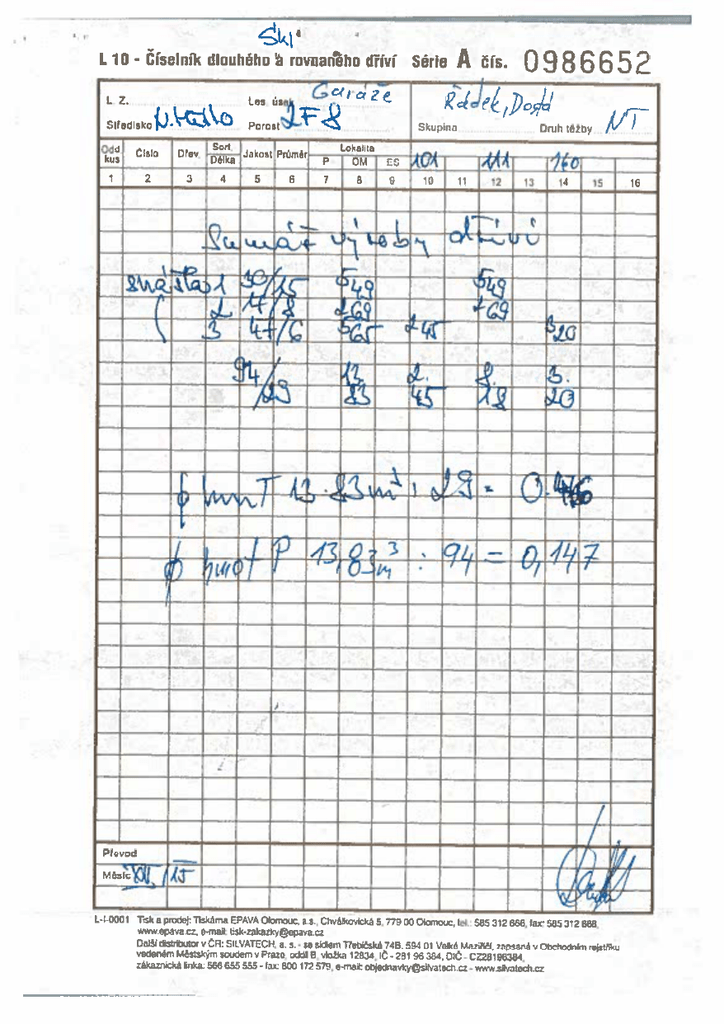 Škl
L 10 - Číselník dlouhého a rovnaného dříví Série A čís. 0986652
L. Z. Les. úsek Garáže Řádek,
Středisko Porost 2F8 Skupina Druh těžby NT
Odd. kus Číslo Dřev. Sort. Délka Jakost Průměr Lokalita P OM ES 101 111 160
1 2 3 4 5 6 7 8 9 10 11 12 13 14 15 16
Sumář výroby dříví
1 30/15 5 49 5 49
2 17/8 2 69 2 69
3 47/6 5 65 2 45 3 20
94/29 13. 83 2. 45 8. 18 3. 20
ϕ hm T 13.83 m³ : 29 = 0.476
ϕ hmot P 13,83 m³ : 94 = 0,147
Převod
Měsíc /15
L-I-0001 Tisk a prodej: Tiskárna EPAVA Olomouc, a.s., Chválkovická 5, 779 00 Olomouc, tel.: 585 312 666, fax: 585 312 888,
www.epava.cz, e-mail: tisk-zakazky@epava.cz
Další distributor v ČR: SILVATECH, a. s. - se sídlem Třebíčská 74B, 594 01 Velké Meziříčí, zapsaná v Obchodním rejstříku
vedeném Městským soudem v Praze, oddíl B, vložka 12834, IČ - 281 96 384, DIČ - CZ28196384,
zákaznická linka: 566 655 555 - fax: 800 172 579, e-mail: objednavky@silvatech.cz - www.silvatech.cz